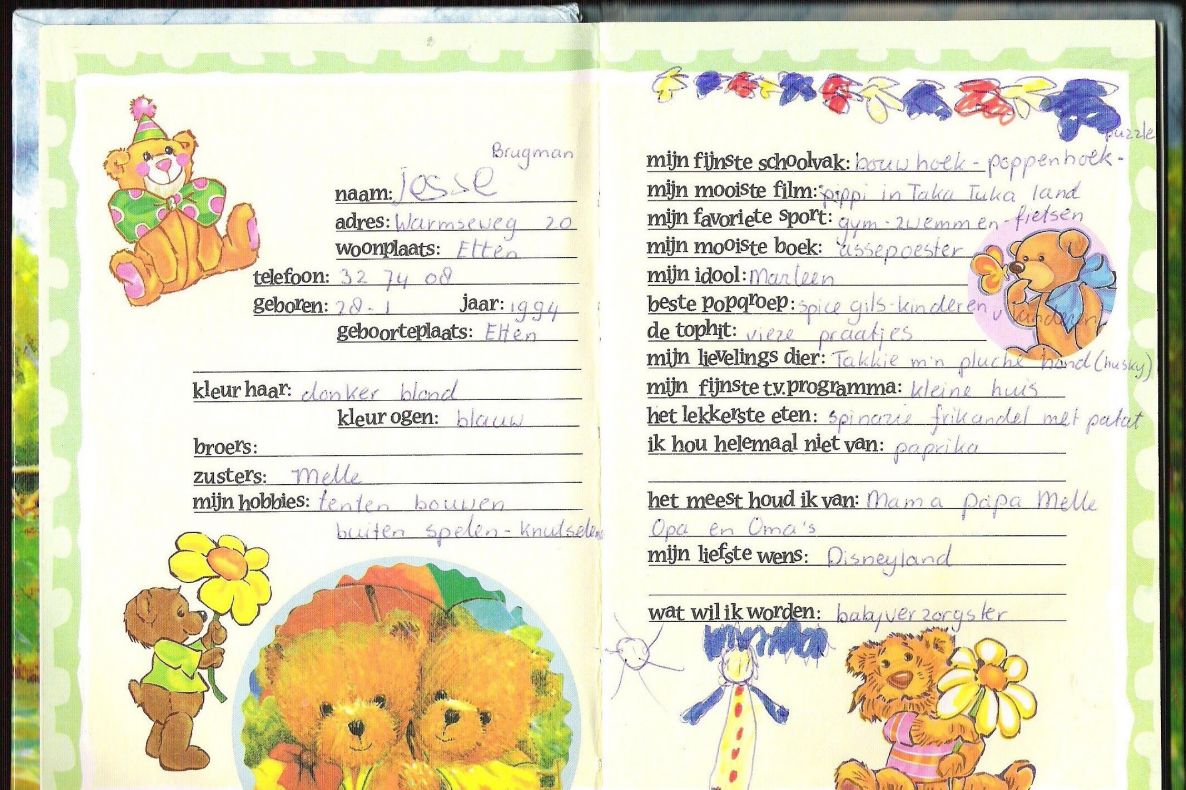 Brugman
naam: Jesse
adres: Warmseweg 20
woonplaats: Etten
telefoon: 32 74 08
geboren: 28-1 jaar: 1994
geboorteplaats: Etten
kleur haar: donker blond
kleur ogen: blauw
broers:
zusters: Melle
mijn hobbies: tenten bouwen
buiten spelen - knutselen
puzzle
mijn fijnste schoolvak: bouwhoek - poppenhoek -
mijn mooiste film: pippi in Taka Tuka land
mijn favoriete sport: gym - zwemmen - fietsen
mijn mooiste boek: assepoester
mijn idool: Marleen
beste popgroep: spice gils - kinderen v
de tophit: vieze praatjes
mijn lievelings dier: Takkie m'n pluche hond (husky)
mijn fijnste t.v. programma: kleine huis
het lekkerste eten: spinazie frikandel met patat
ik hou helemaal niet van: paprika
het meest houd ik van: Mama papa Melle
Opa en Oma's
mijn liefste wens: Disneyland
wat wil ik worden: babyverzorgster